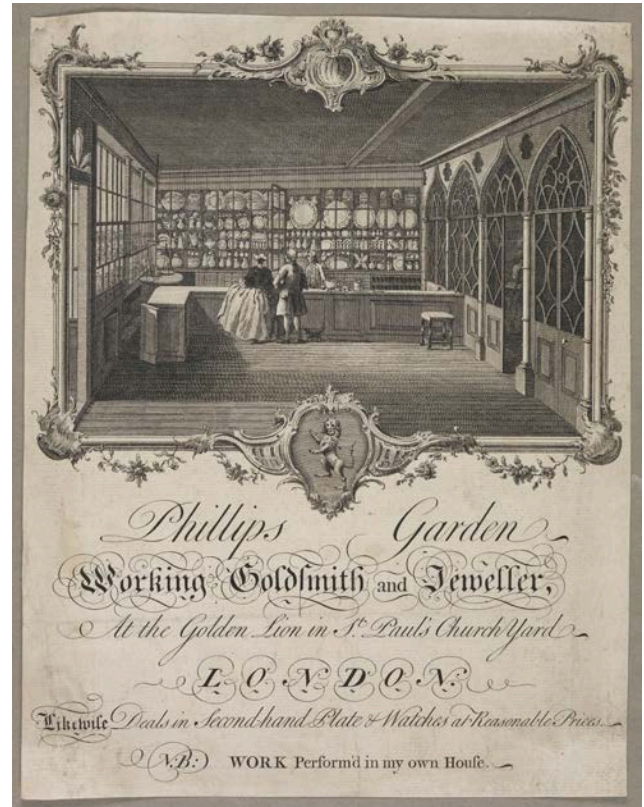 Phillips Garden
Working Goldſmith and Jeweller,
At the Golden Lion in St. Paul's Church Yard
LONDON.
Likewiſe Deals in Second-hand Plate & Watches at Reasonable Prices
N.B: WORK Perform'd in my own Houſe.